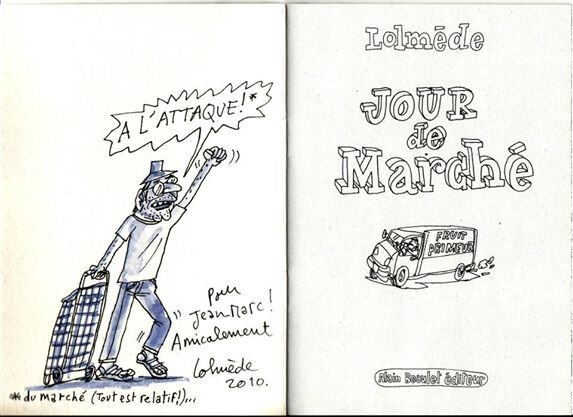 A L'ATTAQUE!*
Pour
Jean-Marc!
Amicalement
Lolmède
2010.
* du marché (Tout est relatif!)...
Lolmède
JOUR
de
Marché
FRUIT
PRIMEUR
Alain Beaulet éditeur